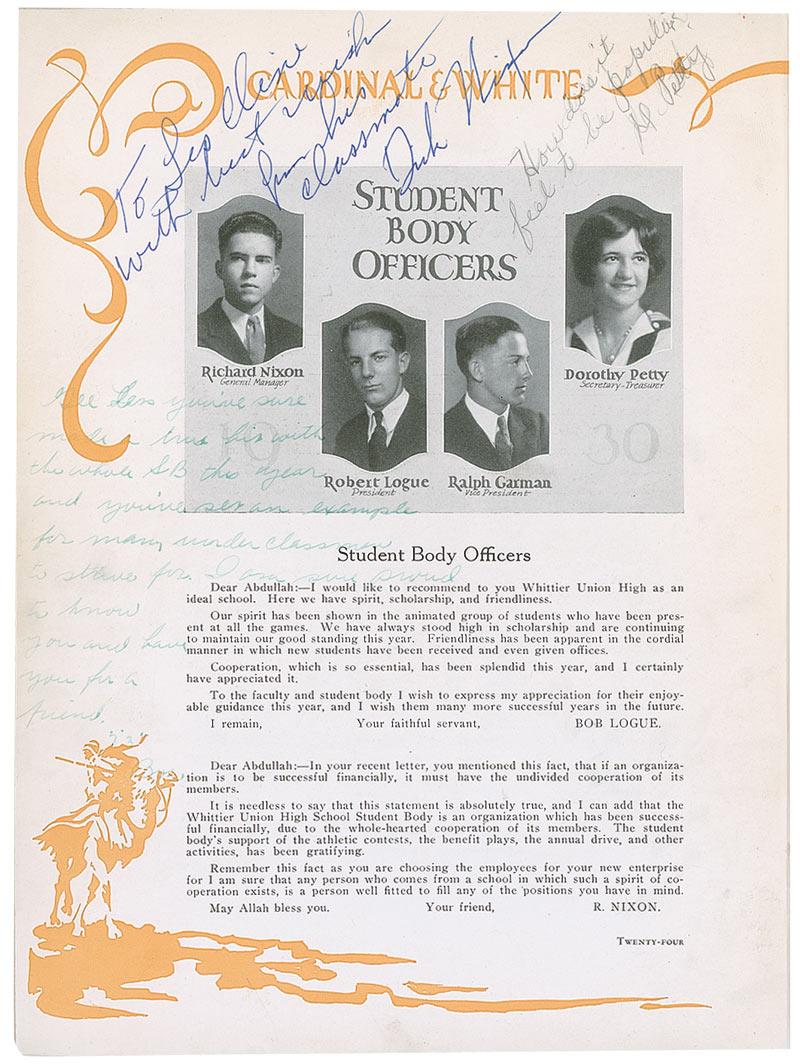 CARDINAL & WHITE
To
with best wishes
from his
classmate
Dick Nixon
How does it
feel to be popular?
D. Petty
STUDENT
BODY
OFFICERS
Richard Nixon
General Manager
Dorothy Petty
Secretary-Treasurer
Robert Logue
President
Ralph Garman
Vice President
19 30
you've sure
made a true his with
the whole S.B this year
and you've set an example
for many under classmen
to strive for. I am sure proud
to know
you and have
you for a
friend.
Student Body Officers
Dear Abdullah:—I would like to recommend to you Whittier Union High as an
ideal school. Here we have spirit, scholarship, and friendliness.
Our spirit has been shown in the animated group of students who have been pres-
ent at all the games. We have always stood high in scholarship and are continuing
to maintain our good standing this year. Friendliness has been apparent in the cordial
manner in which new students have been received and even given offices.
Cooperation, which is so essential, has been splendid this year, and I certainly
have appreciated it.
To the faculty and student body I wish to express my appreciation for their enjoy-
able guidance this year, and I wish them many more successful years in the future.
I remain, Your faithful servant, BOB LOGUE.
Dear Abdullah:—In your recent letter, you mentioned this fact, that if an organiza-
tion is to be successful financially, it must have the undivided cooperation of its
members.
It is needless to say that this statement is absolutely true, and I can add that the
Whittier Union High School Student Body is an organization which has been success-
ful financially, due to the whole-hearted cooperation of its members. The student
body's support of the athletic contests, the benefit plays, the annual drive, and other
activities, has been gratifying.
Remember this fact as you are choosing the employees for your new enterprise
for I am sure that any person who comes from a school in which such a spirit of co-
operation exists, is a person well fitted to fill any of the positions you have in mind.
May Allah bless you. Your friend, R. NIXON.
TWENTY-FOUR